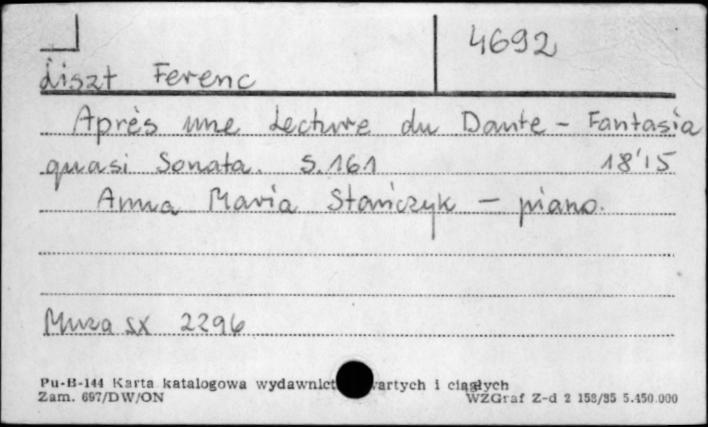 4692
Liszt Ferenc
Après une Lecture du Dante - Fantasia
quasi Sonata. S.161 18'15
Anna Maria Stańczyk - piano.
Muza SX 2296
Pu-B-144 Karta katalogowa wydawnict wartych i ciągłych
Zam. 697/DW/ON WZGraf Z-d 2 158/85 5.450.000